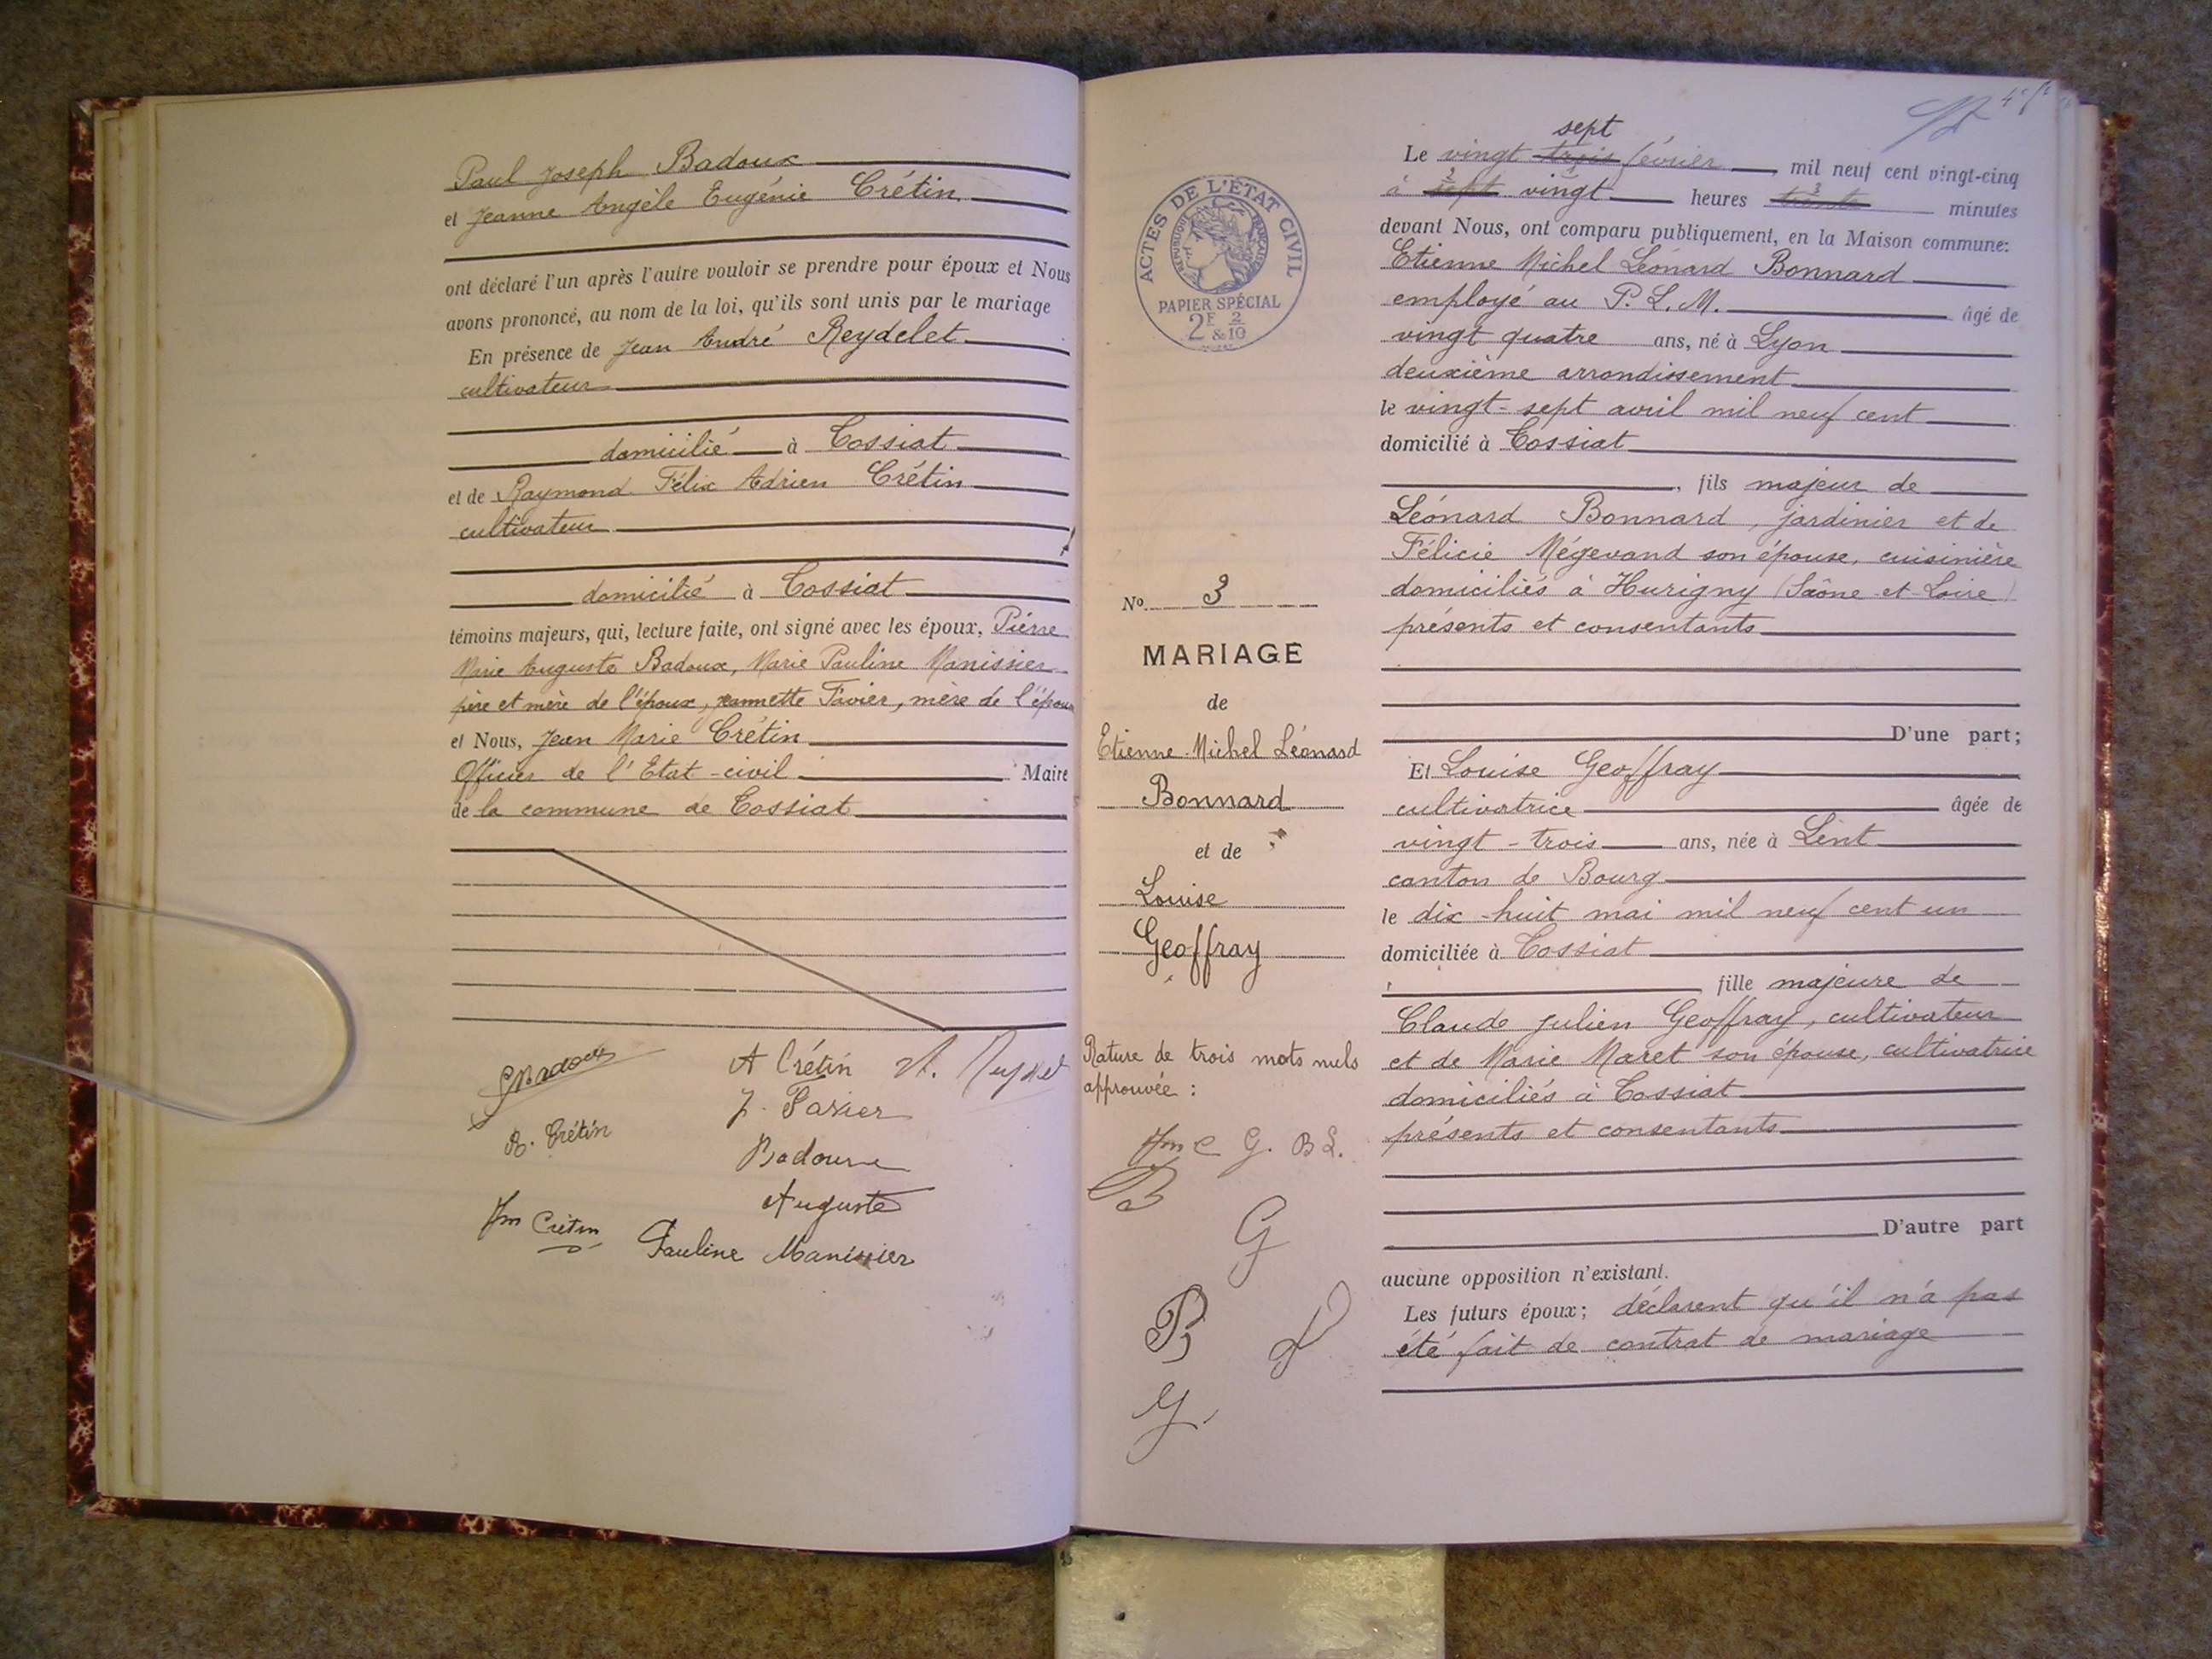 Paul Joseph Badoux
et Jeanne Angèle Eugénie Crétin
ont déclaré l'un après l'autre vouloir se prendre pour époux et Nous
avons prononcé, au nom de la loi, qu'ils sont unis par le mariage
En présence de Jean André Reydelet
cultivateur
domicilié à Tossiat
et de Raymond Félix Adrien Crétin
cultivateur
domicilié à Tossiat
témoins majeurs, qui, lecture faite, ont signé avec les époux, Pierre
Marie Auguste Badoux, Marie Pauline Manissier
père et mère de l'époux, Jeannette Favier, mère de l'épouse
et Nous, Jean Marie Crétin
Officier de l'Etat-civil Maire
de la commune de Tossiat
Badoux
A Crétin
J. Favier
R. Crétin
Badoux
Auguste
Jm Crétin
Pauline Manissier
ACTES DE L'ÉTAT CIVIL
RÉPUBLIQUE FRANÇAISE
PAPIER SPÉCIAL
2F 2
&10
No 3
MARIAGE
de
Etienne Michel Léonard
Bonnard
et de
Louise
Geoffray
Rature de trois mots nuls
approuvée :
Jm C G. B L.
B
G
B
G
Le vingt trois sept février mil neuf cent vingt-cinq
à sept vingt heures trente minutes
devant Nous, ont comparu publiquement, en la Maison commune:
Etienne Michel Léonard Bonnard
employé au P. L. M. âgé de
vingt quatre ans, né à Lyon
deuxième arrondissement
le vingt-sept avril mil neuf cent
domicilié à Tossiat
, fils majeur de
Léonard Bonnard, jardinier et de
Félicie Mégevand son épouse, cuisinière
domiciliés à Hurigny (Saône-et-Loire)
présents et consentants
D'une part;
Et Louise Geoffray
cultivatrice âgée de
vingt-trois ans, née à Lent
canton de Bourg
le dix-huit mai mil neuf cent un
domiciliée à Tossiat
, fille majeure de
Claude Julien Geoffray, cultivateur
et de Marie Maret son épouse, cultivatrice
domiciliés à Tossiat
présents et consentants
D'autre part
aucune opposition n'existant.
Les futurs époux; déclarent qu'il n'a pas
été fait de contrat de mariage